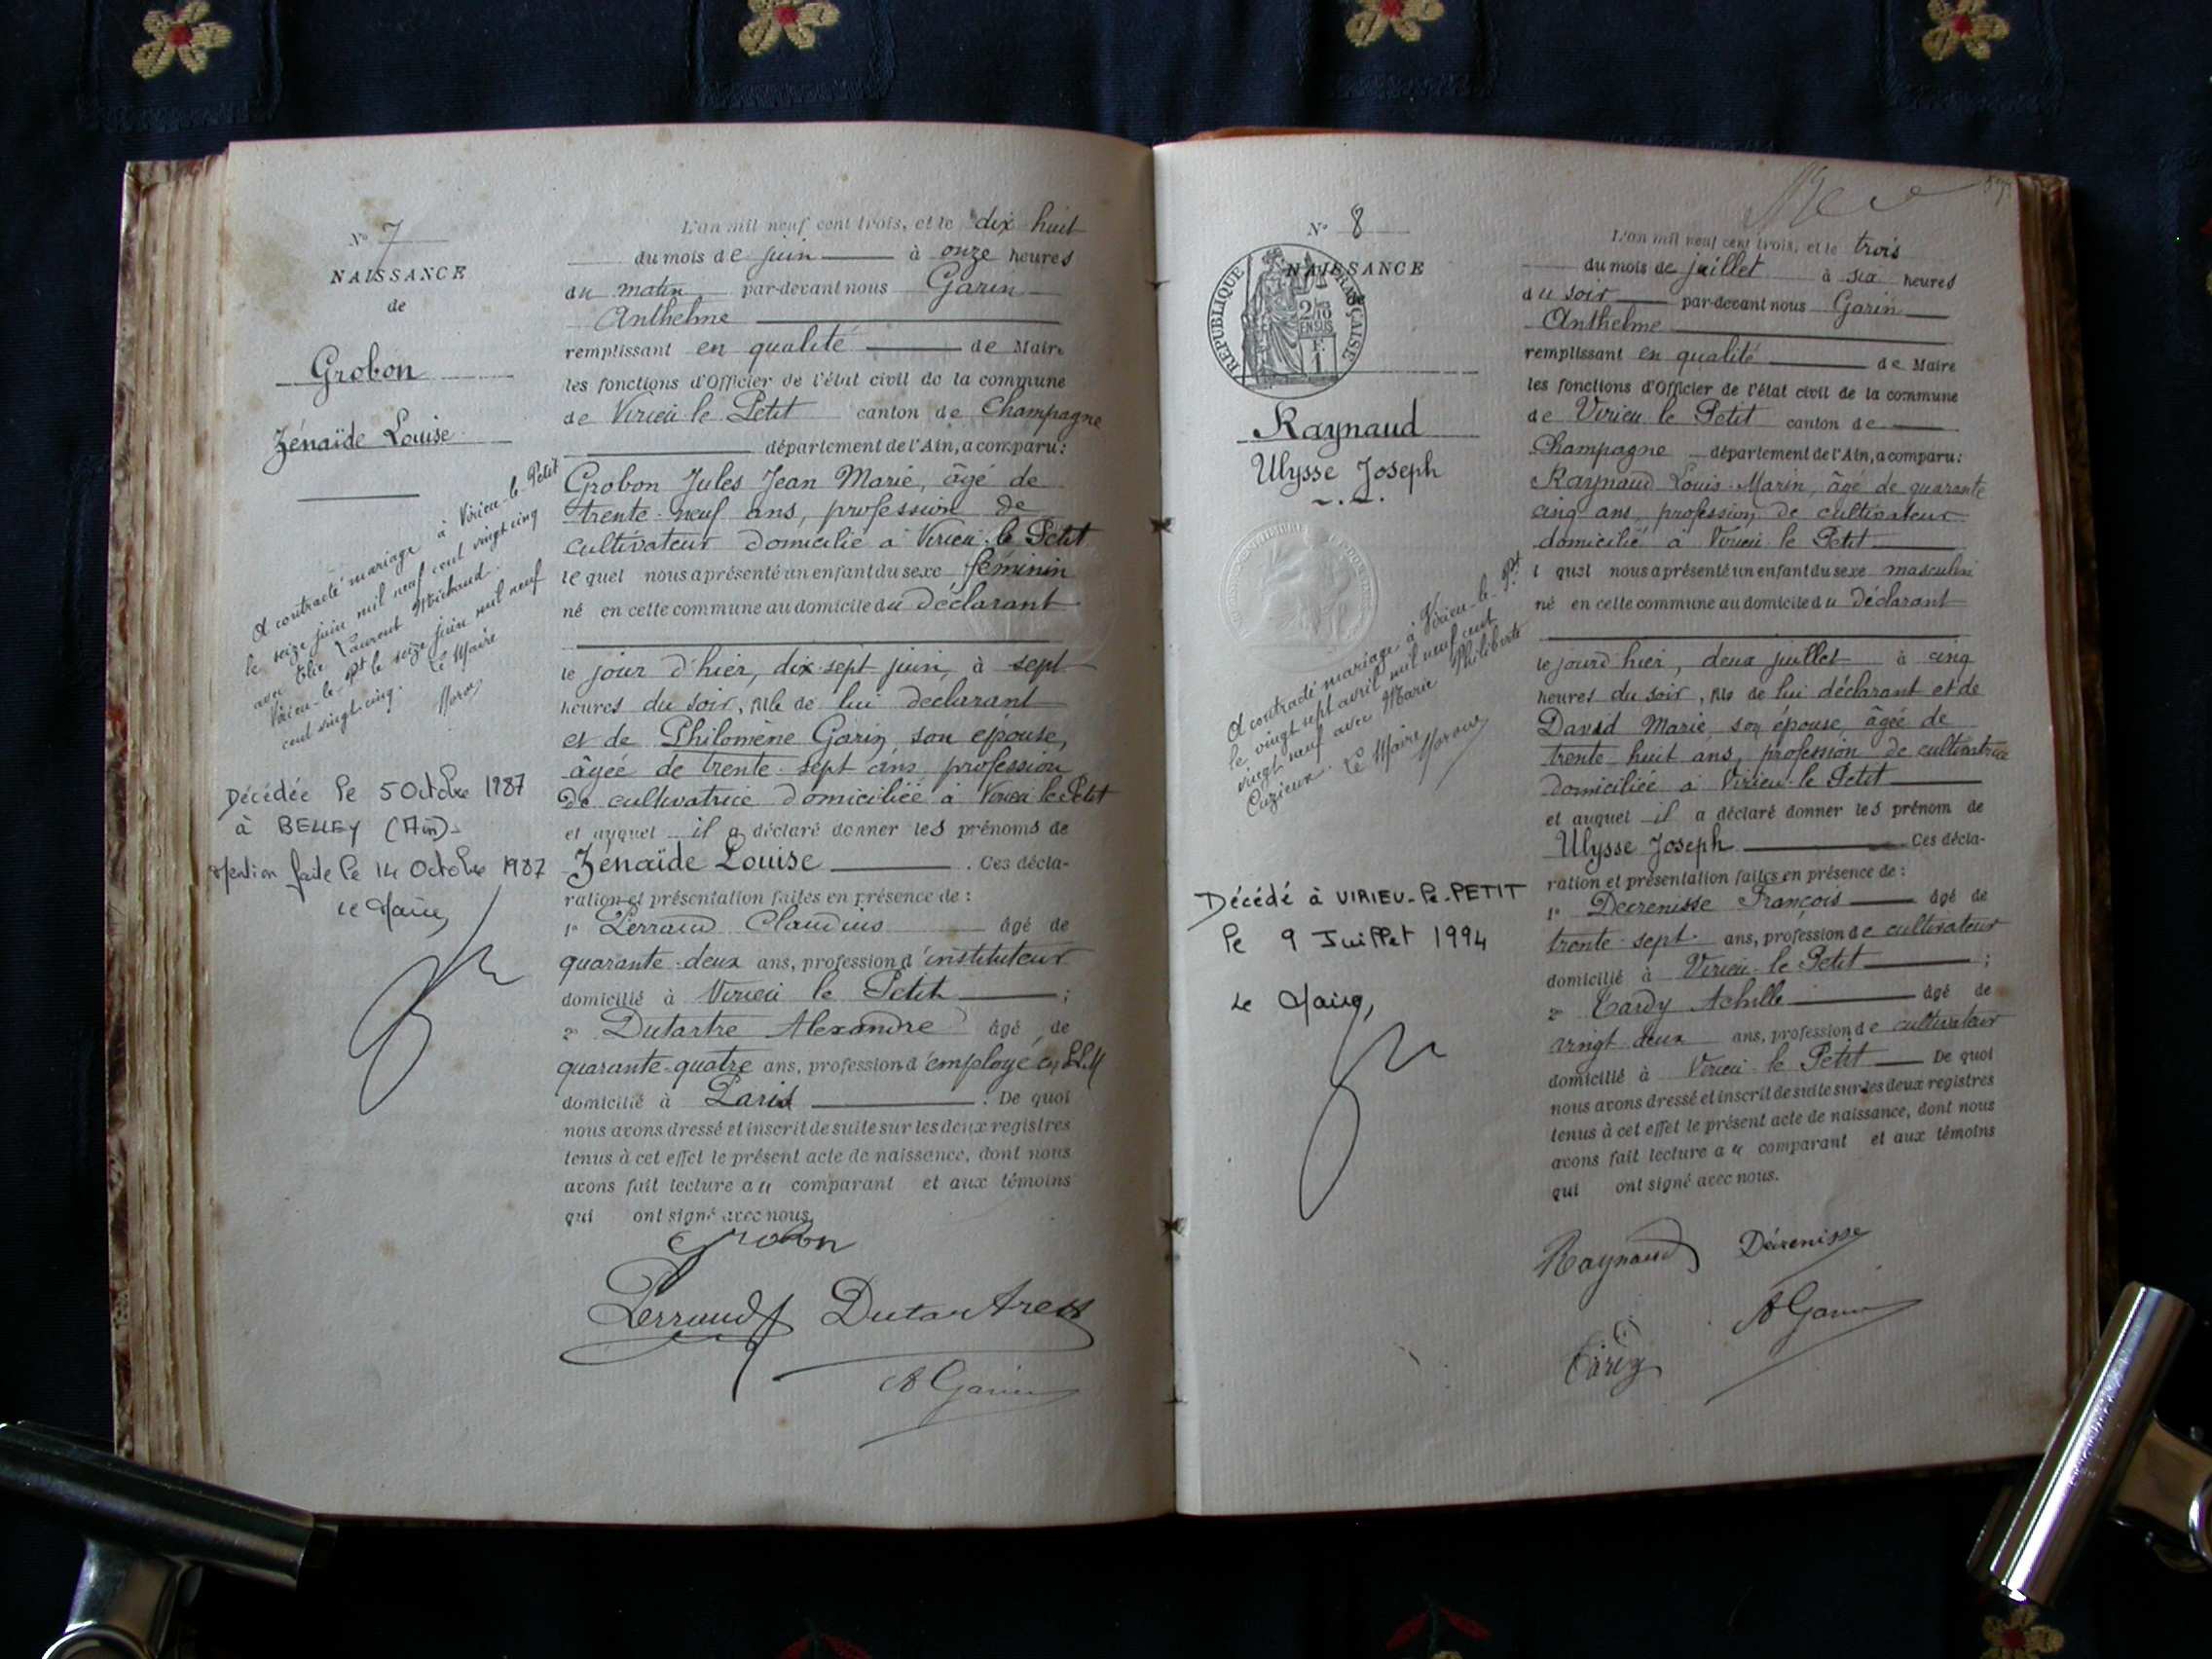 N° 7
NAISSANCE
de
Grobon
Zénaïde Louise
A contracté mariage à Virieu-le-Petit
le seize juin mil neuf cent vingt cinq
avec Elie Laurent Michaud.
Virieu-le-Pt le seize juin mil neuf
cent vingt-cinq. Le Maire
Décédée le 5 Octobre 1987
à BELLEY (Ain)
Mention faite le 14 Octobre 1987
Le Maire,
L'an mil neuf cent trois, et le dix huit
du mois de juin à onze heures
du matin par-devant nous Garin
Anthelme
remplissant en qualité de Maire
les fonctions d'Officier de l'état civil de la commune
de Virieu le Petit canton de Champagne
département de l'Ain, a comparu:
Grobon Jules Jean Marie, âgé de
trente-neuf ans, profession de
cultivateur domicilié à Virieu-le Petit
lequel nous a présenté un enfant du sexe féminin
né en cette commune au domicile du déclarant
le jour d'hier, dix-sept juin, à sept
heures du soir, fille de lui déclarant
et de Philomène Garin, son épouse,
âgée de trente-sept ans, profession
de cultivatrice domiciliée à Virieu le Petit
et auquel il a déclaré donner les prénoms de
Zénaïde Louise . Ces décla-
ration et présentation faites en présence de :
1° Perraud Claudius âgé de
quarante-deux ans, profession d'instituteur
domicilié à Virieu le Petit ;
2° Dutartre Alexandre âgé de
quarante-quatre ans, profession d'employé au P.L.M
domicilié à Paris . De quoi
nous avons dressé et inscrit de suite sur les deux registres
tenus à cet effet le présent acte de naissance, dont nous
avons fait lecture au comparant et aux témoins
qui ont signé avec nous.
Grobon
Perraud Dutartre
A Garin
N° 8
NAISSANCE
de
REPUBLIQUE FRANÇAISE
2/10
EN SUS
1 F
Raynaud
Ulysse Joseph
A contracté mariage à Virieu-le-Pt
le vingt sept avril mil neuf cent
vingt neuf avec Marie Philiberte
Cuzieux. Le Maire
Décédé à VIRIEU-le-PETIT
le 9 Juillet 1994
Le Maire,
L'an mil neuf cent trois, et le trois
du mois de juillet à six heures
du soir par-devant nous Garin
Anthelme
remplissant en qualité de Maire
les fonctions d'Officier de l'état civil de la commune
de Virieu le Petit canton de
Champagne département de l'Ain, a comparu:
Raynaud Louis-Marin, âgé de quarante
cinq ans, profession de cultivateur
domicilié à Virieu le Petit
l quel nous a présenté un enfant du sexe masculin
né en cette commune au domicile du déclarant
le jour d'hier, deux juillet à cinq
heures du soir, fils de lui déclarant et de
David Marie, son épouse, âgée de
trente-huit ans, profession de cultivatrice
domiciliée à Virieu-le Petit
et auquel il a déclaré donner les prénom de
Ulysse Joseph Ces décla-
ration et présentation faites en présence de :
1° Décrenisse François âgé de
trente-sept ans, profession de cultivateur
domicilié à Virieu-le Petit ;
2° Tardy Achille âgé de
vingt-deux ans, profession de cultivateur
domicilié à Virieu-le Petit De quoi
nous avons dressé et inscrit de suite sur les deux registres
tenus à cet effet le présent acte de naissance, dont nous
avons fait lecture au comparant et aux témoins
qui ont signé avec nous.
Raynaud Décrenisse
A Garin